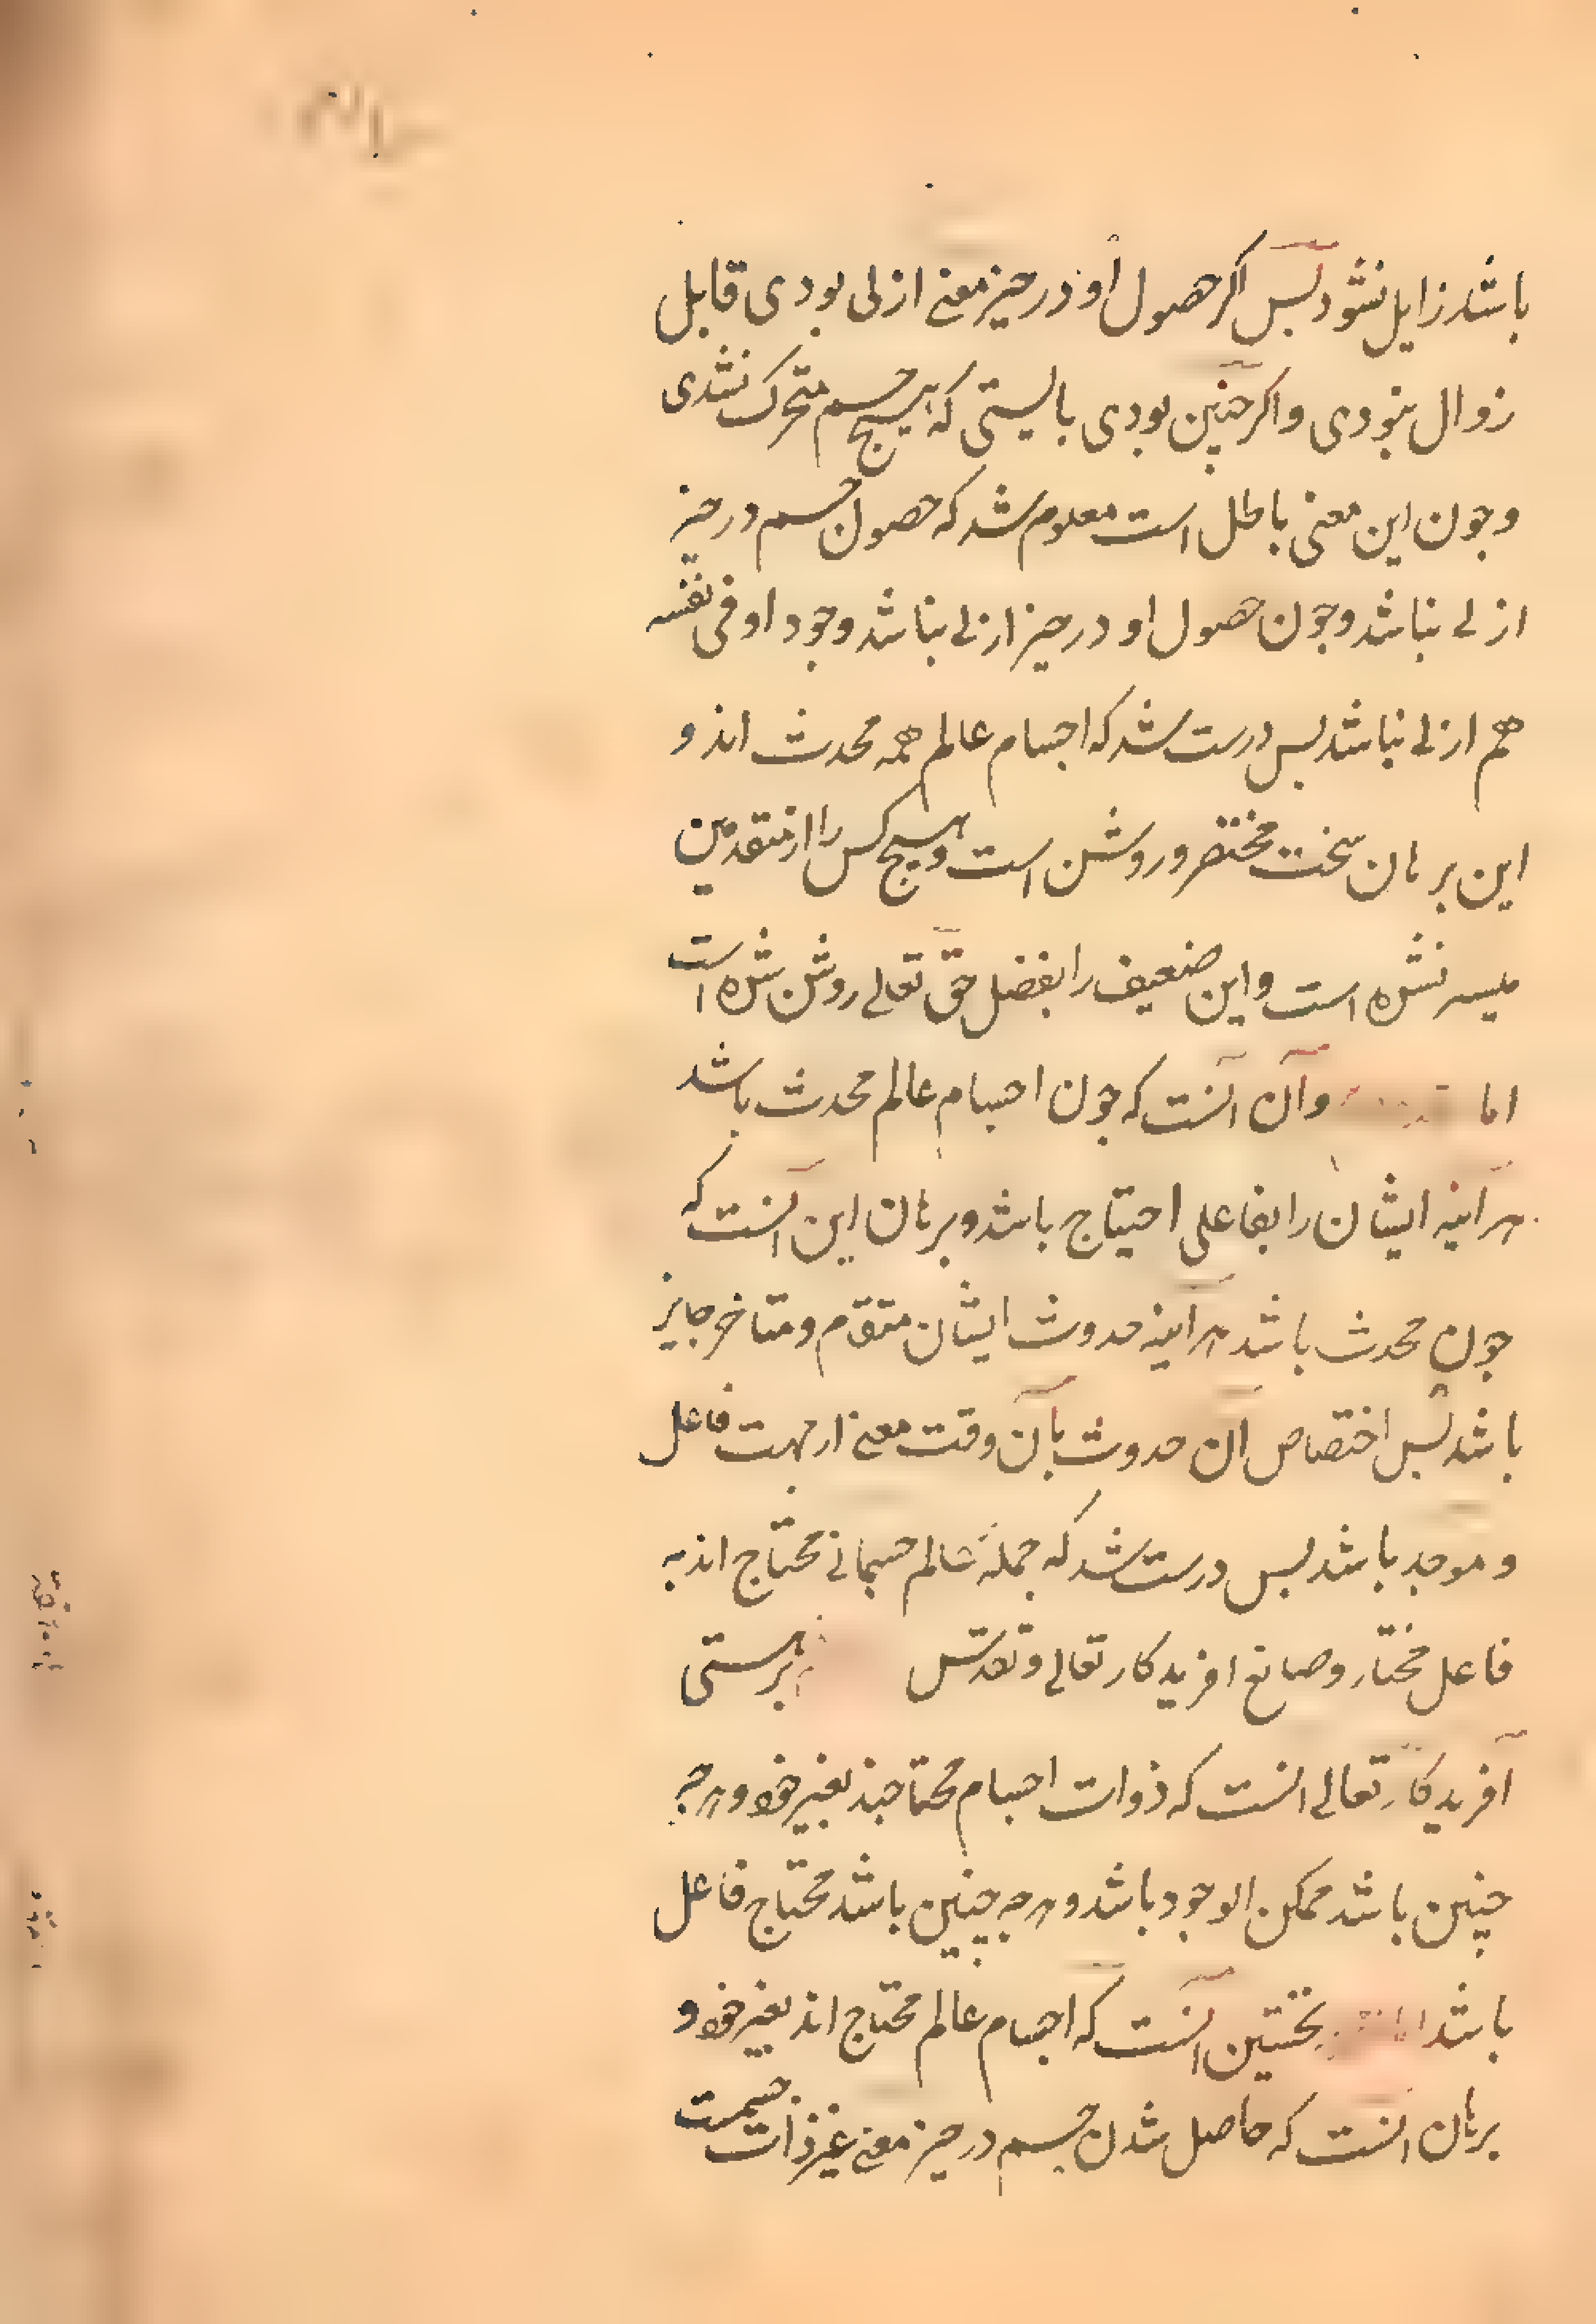 باشد زایل نشود بس اکر حصول او در حیز معین ازلی بودی قابل
زوال نبودی واکر چنین بودی بایستی که هیچ جسم متحرک نشدی
وجون این معنی باطل است معلوم شد که حصول جسم در حیز
ازلی نباشد وجون حصول او در حیز ازلی نباشد وجود او فی نفسه
هم ازلی نباشد بس درست شد که اجسام عالم همه محدث اند و
این برهان سخت مختصر و روشن است وهیچ کس را از متقدمین
میسر نشده است واین ضعیف را بفضل حق تعالی روشن شده است
اما وآن آنست که جون اجسام عالم محدث باشد
هرآینه ایشان را بفاعلی احتیاج باشد وبرهان این آنست که
جون محدث باشد هرآینه حدوث ایشان متقدم ومتاخر جایز
باشد بس اختصاص آن حدوث بآن وقت معین از جهت فاعل
وموجد باشد بس درست شد که جمله عالم جسمانی محتاج اند به
فاعل مختار وصانع افریدکار تعالی وتقدس برهستی
آفریدکار تعالی آنست که ذوات اجسام محتاجند بغیر خود وهرجه
چنین باشد ممکن الوجود باشد وهرجه چنین باشد محتاج فاعل
باشد اما نخستین آنست که اجسام عالم محتاج اند بغیر خود و
برهان آنست که حاصل شدن جسم در حیز معین غیر ذات جسمست